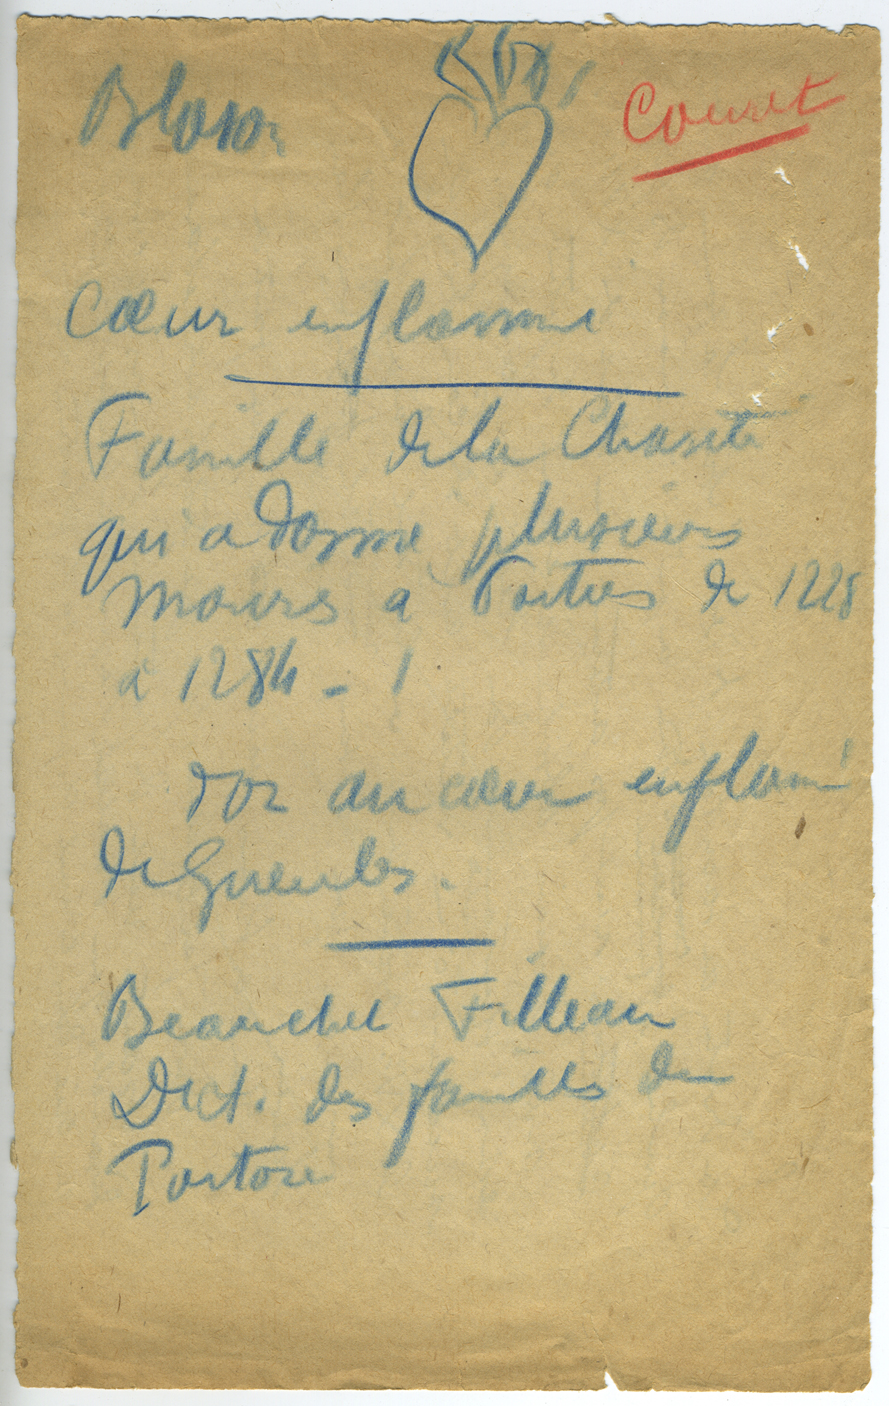 Blason
Couret
Cœur enflammé
Famille de la Charité
qui a donné plusieurs
maires à Poitiers de 1228
à 1284 - !
d'or au cœur enflammé
de Gueules.
Beauchet Filleau
Dict. des familles du
Poitou